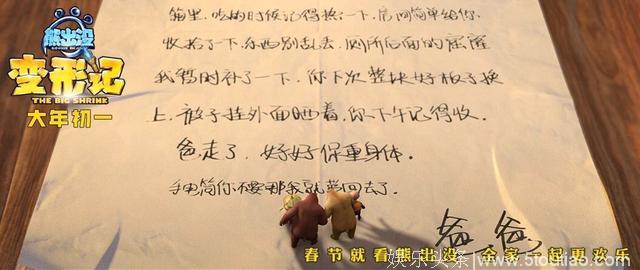 箱里,吃的时候记得热一下,房间简单给你
收拾了一下,东西别乱丢,厕所后面的窟窿
我暂时补了一下,你下次整块好板子换
上,被子挂外面晒着,你下午记得收。
爸走了,好好保重身体。
手电筒你不要那我就带回去了。
爸爸
熊出没
变形记
THE BIG SHRINK
大年初一
春节就看熊出没 全家一起更欢乐
娱乐头条/www.51toutiao.com